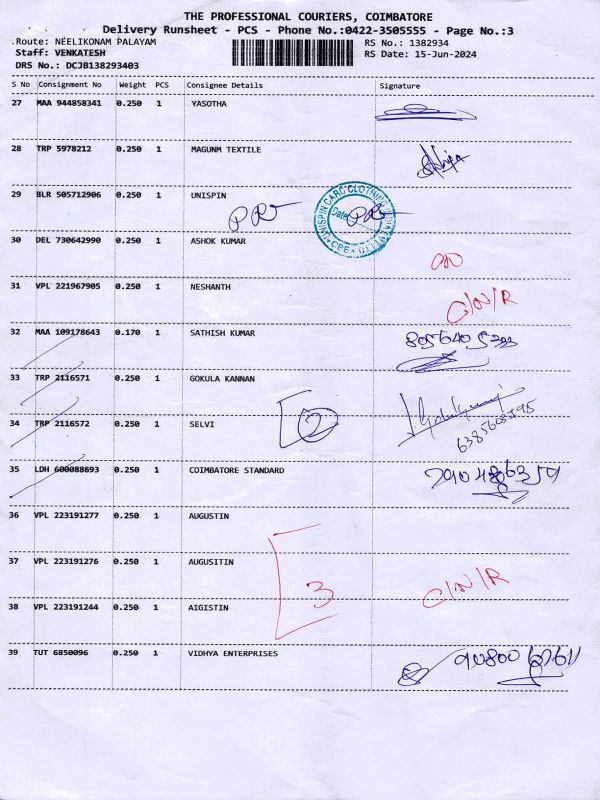 THE PROFESSIONAL COURIERS, COIMBATORE
Delivery Runsheet - PCS - Phone No.:0422-3505555 - Page No.:3
Route: NEELIKONAM PALAYAM
RS No.: 1382934
Staff: VENKATESH
RS Date: 15-Jun-2024
DRS No.: DCJB138293403
S No Consignment No Weight PCS Consignee Details Signature
27 MAA 944858341 0.250 1 YASOTHA
28 TRP 5978212 0.250 1 MAGUNM TEXTILE
29 BLR 505712906 0.250 1 UNISPIN
30 DEL 730642990 0.250 1 ASHOK KUMAR
31 VPL 221967905 0.250 1 NESHANTH C/N/R
32 MAA 109178643 0.170 1 SATHISH KUMAR
33 TRP 2116571 0.250 1 GOKULA KANNAN
34 TRP 2116572 0.250 1 SELVI 2
35 LDH 600088693 0.250 1 COIMBATORE STANDARD
36 VPL 223191277 0.250 1 AUGUSTIN
37 VPL 223191276 0.250 1 AUGUSITIN 3 C/N/R
38 VPL 223191244 0.250 1 AIGISTIN
39 TUT 6850096 0.250 1 VIDHYA ENTERPRISES